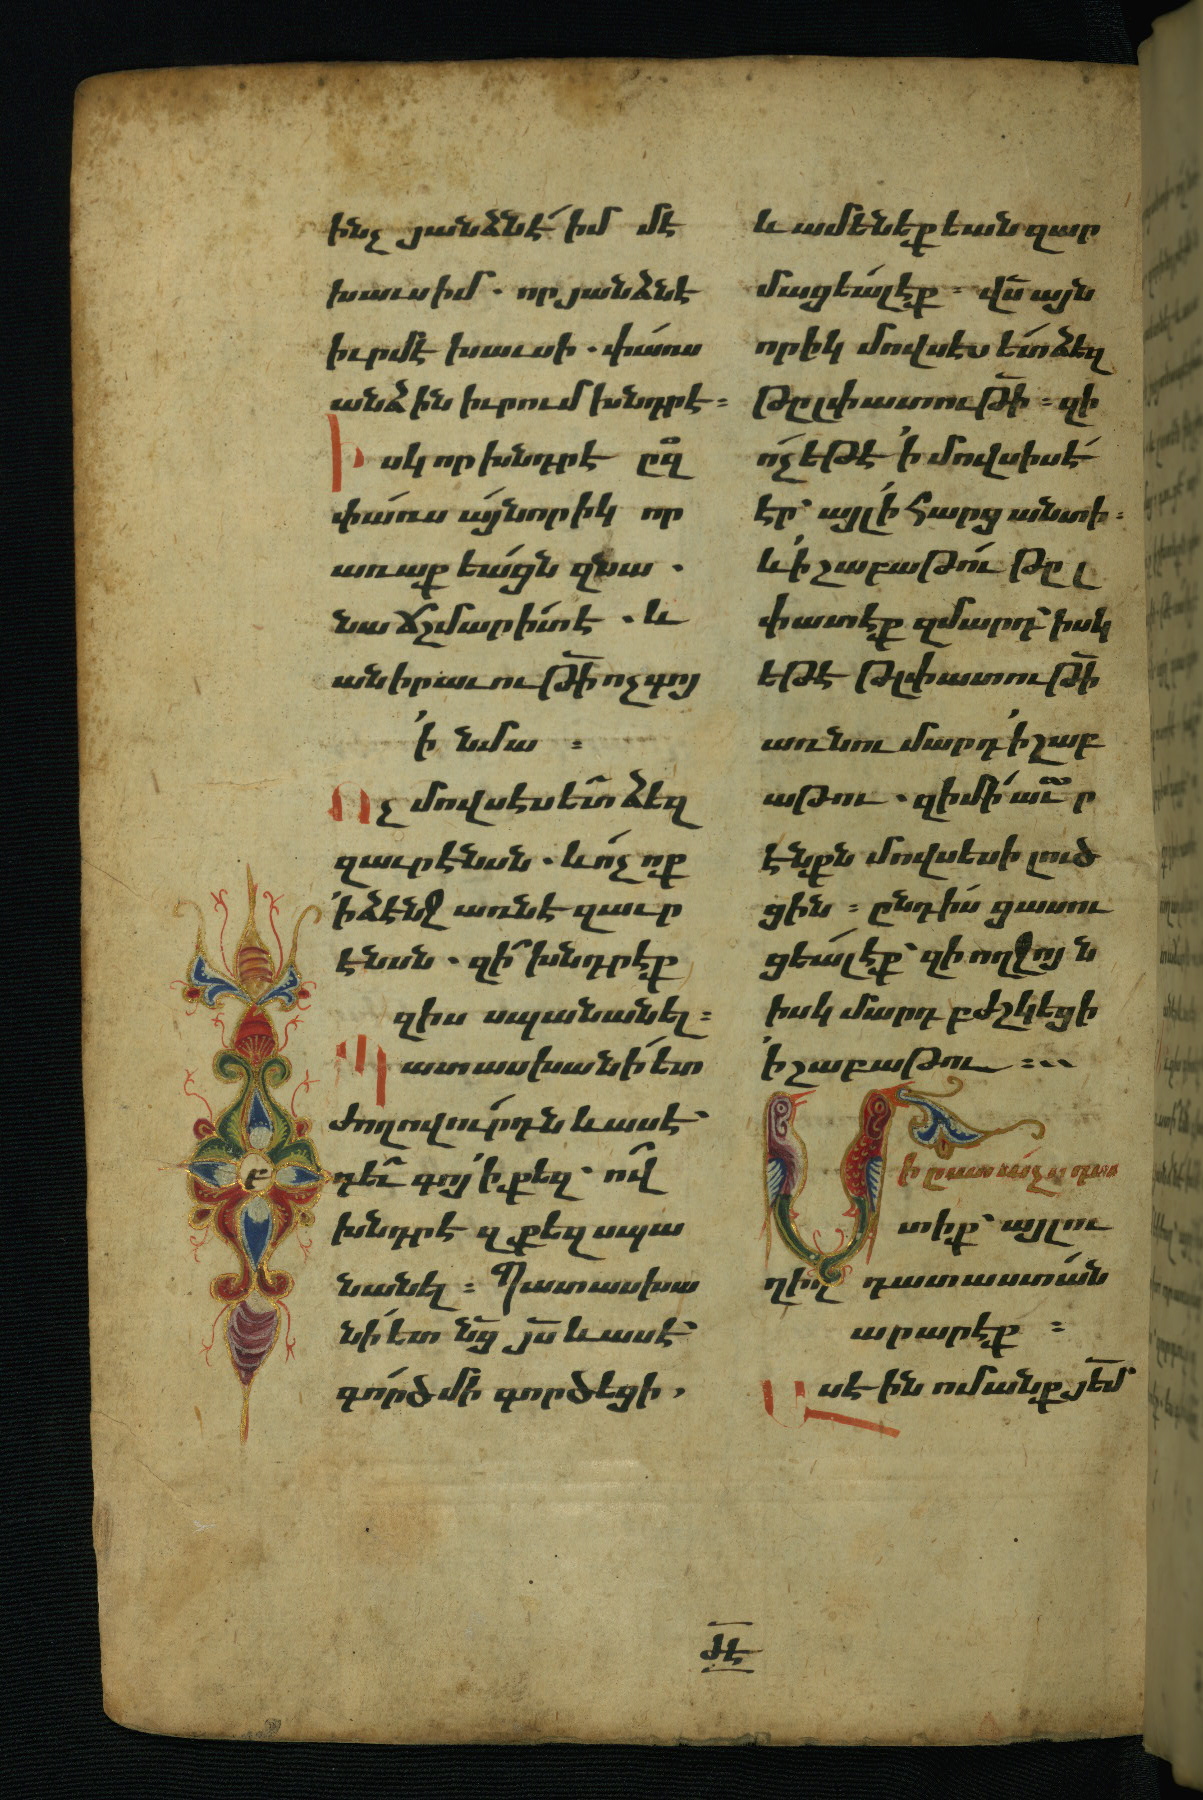 ինչ յանձնէ իմ մէ
խաւսիմ. որ յանձնէ
իւրմէ խաւսի. փառս
անձին իւրում խնդրէ:
Իսկ որ խնդրէ ըզ
փառս այնորիկ որ
առաքեացն զնա.
նա ճշմարիտ է. և
անիրաւութի ոչ գոյ
ի նմա:
Ոչ մովսէս ետ ձեզ
զաւրէնսն. և ոչ ոք
ի ձէնջ առնէ զաւր
էնսն. զի խնդրէք
զիս սպանանել:
Պատասխանի ետ
ժողովուրդն և ասէ՝
դեւ գոյ ի քեզ. ով
խնդրէ զքեզ սպա
նանել: Պատասխա
նի ետ նց յս և ասէ՝
գործ մի գործեցի,
բ
և ամենեքեան զար
մացեալէք: վս այն
որիկ մովսէս ետ ձեզ
թըլփատութի: զի
ոչ եթէ ի մովսիսէ
էր՝ այլ ի հարց անտի:
և ի շաբաթու թըլ
փատէք զմարդ՝ իսկ
եթէ թլփատութի
առնու մարդ ի շաբ
աթու. զի մի աւր
էնքն մովսեսի լուծ
ցին: ընդ իս ցասու
ցեալէք՝ զի ողջոյն
իսկ մարդ բժշկեցի
ի շաբաթու:
Մի ըստ աչս դա
տիք՝ այլ ու
ղիղ դատաստան
արարէք:
Ասէին ոմանք յեմ
ժէ